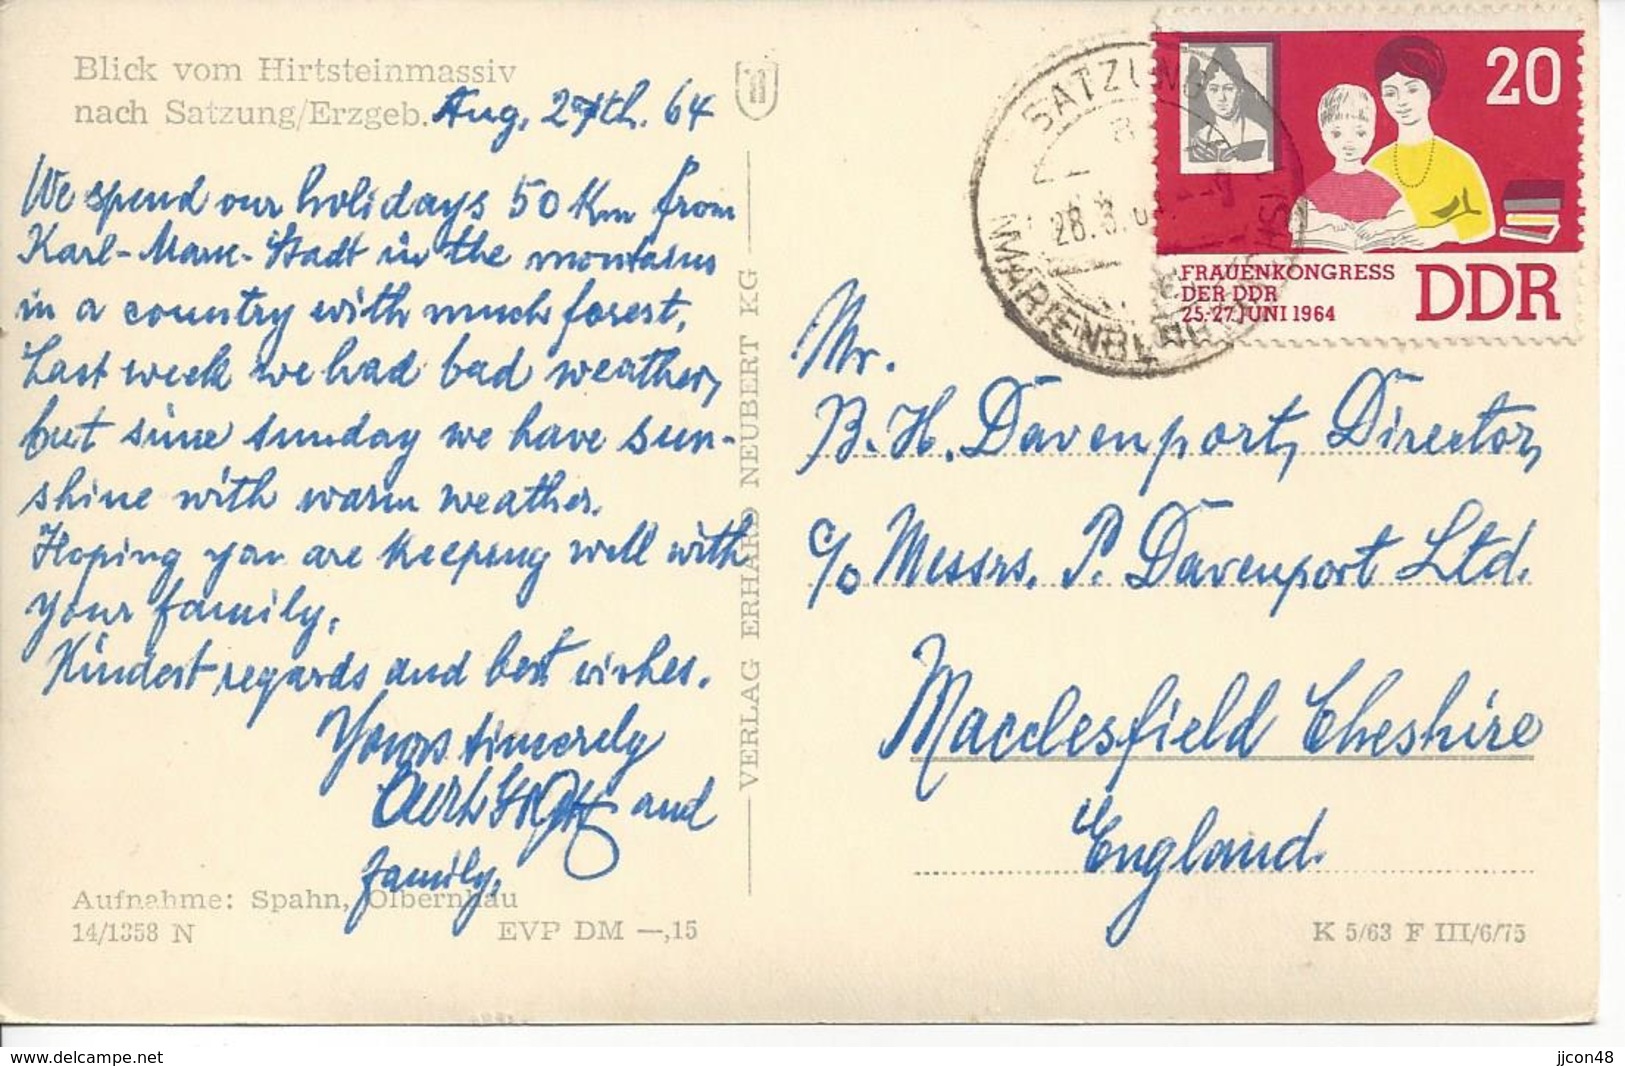 Blick vom Hirtsteinmassiv
nach Satzung/Erzgeb.
Aug, 27th. 64
We spend our holidays 50 Km from
Karl-Marx-Stadt in the mountains
in a country with much forest.
Last week we had bad weather,
but sinse sunday we have sun-
shine with warm weather.
Hoping you are keeping well with
your family.
Kindest regards and best wishes.
Yours sincerely
and
family.
Aufnahme: Spahn, Olbernhau
14/1358 N
EVP DM —,15
VERLAG ERHARD NEUBERT KG
SATZUNG
(MARIENBERG
28.8.64
20
FRAUENKONGRESS
DER DDR
25.-27. JUNI 1964
DDR
Mr.
B. H. Davenport, Director,
c/o Messrs. P. Davenport Ltd.
Macclesfield Cheshire
England.
K 5/63 F III/6/75
jjcon48 in my pics akc
jjcon48